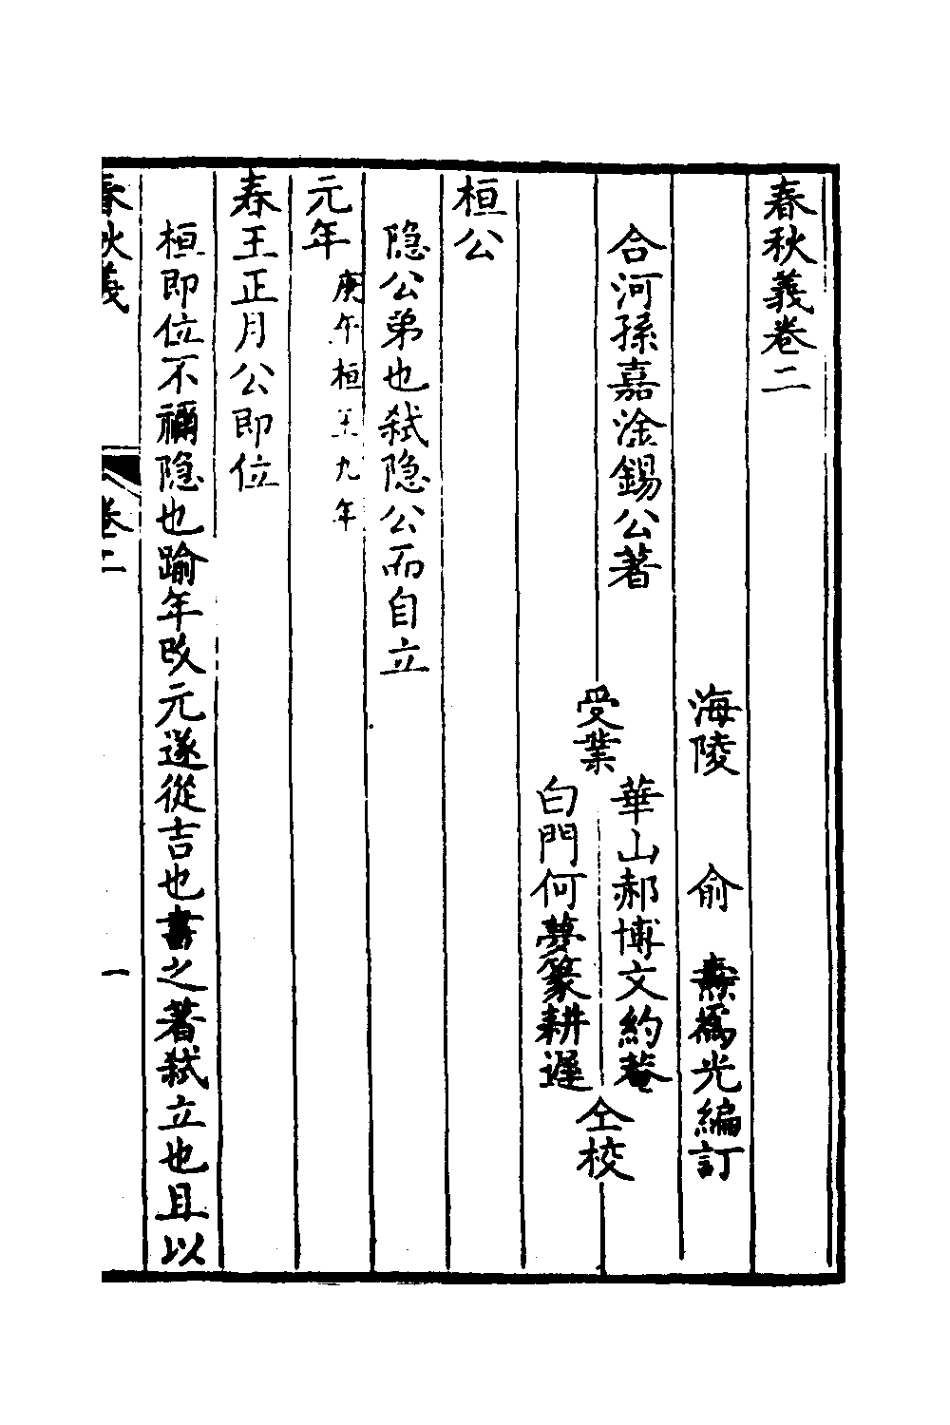 春秋義卷二
海陵　俞　燾爲光編訂
合河孫嘉淦錫公著
受業
華山郝博文約菴
白門何夢篆耕遲
仝校
桓公
隐公弟也弑隐公而自立
元年庚午桓王九年
春王正月公即位
桓即位不禰隐也踰年改元遂從吉也書之著弑立也且以
春秋義　卷二　一